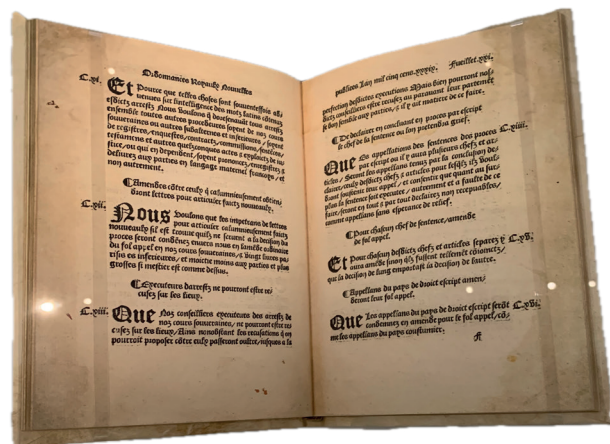 Ordonnances Royaulx Nouvelles
C.xi.
Et Pource que telles choses sont souventesfois ad-
uenues sur lintelligence des motz latins contenus
esdictz arrestz Nous voulons q̃ doresnauãt tous arrestz
ensemble toutes autres procedures soyent de nos cours
souueraines ou autres subalternes et inferieures / soyent
de registres / enquestes / contractz / commissions / sentẽces /
testamens et autres quelzconques actes z exploictz de ius-
tice / ou qui en dependent / soyent prononcez / enregistrez z
deliurez aux parties en langage maternel françoys / et
non autrement.
¶ Amendes cõtre ceulx q̃ calumnieusement obtiẽ-
dront lettres pour articuler faictz nouueaulx.
C.xii.
Nous Voulons que les impetrans de lettres
pour articuler calumnieusement faictz
nouueaulx sil est trouue quilz ne seruent a la decision du
proces seront condẽnez enuers nous en lamẽde ordinaire
du fol appel en nos cours souueraines / z vingt liures pa-
risis es inferieures / et moictie moins aux parties et plus
grosses si mestier est comme dessus.
¶ Executeurs darrestz ne pourront estre re-
cusez sur les lieux.
C.xiii.
Que Nos conseilliers executeurs des arrestz de
nos cours souueraines / ne pourront estre re-
cusez sur les lieux / Ains nonobstant les recusations q̃ on
pourroit proposer cõtre eulx passeront oultre / iusques a la
publiees Lan mil cinq cens.xxxix. Fueillet.xxi.
perfection desdictes executions Mais bien pourront nos-
dictz conseilliers estre recusez au parauant leur partemẽt
si bon semble aux parties / z il y ait matiere de ce faire.
¶ De declairer en concluant en proces par escript
le chef de la sentence ou lon pretendra grief.
C.xiiii.
Que Es appellations des sentences des proces
par escript ou il y aura plusieurs chefz et ar-
ticles / Seront les appellans tenuz par la conclusion de
clairer / ceulx desdictz chefz z articles pour lesqlz ilz voul-
dront soustenir leur appel / et consentir que quant au sur-
plus la sentence soit executee / autrement et a faulte de ce
faire / seront en tout z par tout declairez non recepuables /
comme appellans sans esperance de relief.
¶ Pour chascun chef de sentence / amende
de fol appel.
C.xv.
Et Pour chascun desdictz chefz et articles separez y
aura amẽde sinon qlz fussent tellemẽt cõioinctz /
que la decision de lung emportast la decision de lautre.
¶ Appellans du pays de droict escript amen-
deront leur fol appel.
C.xvi.
Que Les appellans du pays de droict escript serõt
condemnez en amende pour le fol appel / cõ-
me les appellans du pays coustumier.